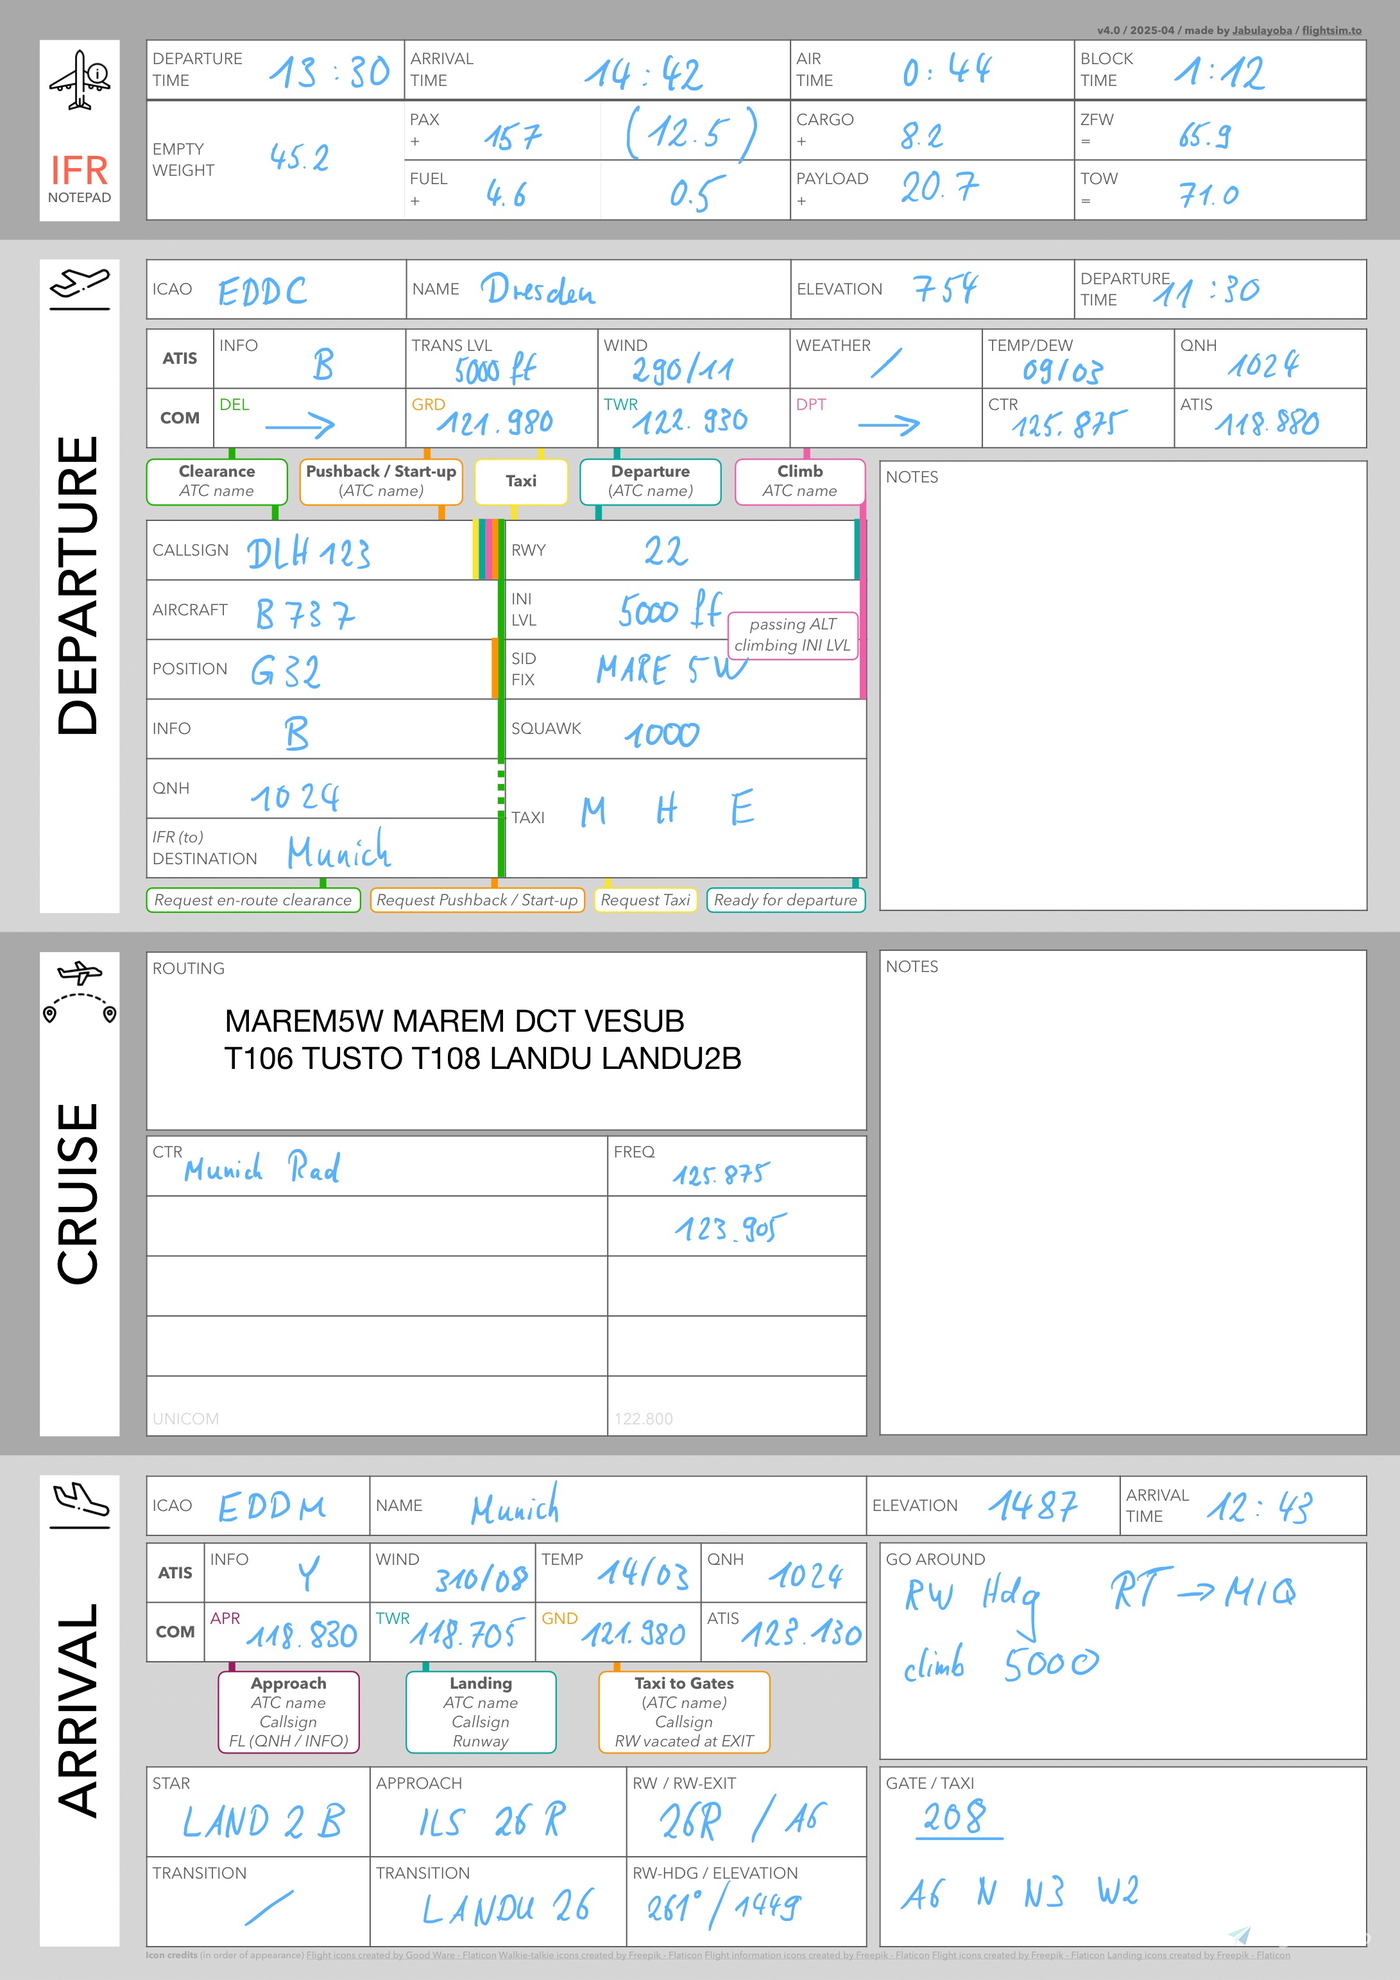 v4.0 / 2025-04 / made by Jabulayoba / flightsim.to
IFR
NOTEPAD
DEPARTURE TIME 13:30 ARRIVAL TIME 14:42 AIR TIME 0:44 BLOCK TIME 1:12
EMPTY WEIGHT 45.2
PAX + 157 (12.5) CARGO + 8.2 ZFW = 65.9
FUEL + 4.6 0.5 PAYLOAD + 20.7 TOW = 71.0
DEPARTURE
ICAO EDDC NAME Dresden ELEVATION 754 DEPARTURE TIME 11:30
ATIS INFO B TRANS LVL 5000 ft WIND 290/11 WEATHER / TEMP/DEW 09/03 QNH 1024
COM DEL → GRD 121.980 TWR 122.930 DPT → CTR 125.875 ATIS 118.880
Clearance Pushback / Start-up Taxi Departure Climb
ATC name (ATC name) (ATC name) ATC name
NOTES
CALLSIGN DLH 123 RWY 22
AIRCRAFT B737 INI LVL 5000 ft
passing ALT
climbing INI LVL
POSITION G32 SID FIX MARE 5W
INFO B SQUAWK 1000
QNH 1024
TAXI M H E
IFR (to)
DESTINATION Munich
Request en-route clearance Request Pushback / Start-up Request Taxi Ready for departure
CRUISE
ROUTING
MAREM5W MAREM DCT VESUB
T106 TUSTO T108 LANDU LANDU2B
NOTES
CTR Munich Rad FREQ 125.875
123.905
UNICOM 122.800
ARRIVAL
ICAO EDDM NAME Munich ELEVATION 1487 ARRIVAL TIME 12:43
ATIS INFO Y WIND 310/08 TEMP 14/03 QNH 1024
COM APR 118.830 TWR 118.705 GND 121.980 ATIS 123.130
GO AROUND
RW Hdg RT → MIQ
climb 5000
Approach Landing Taxi to Gates
ATC name ATC name (ATC name)
Callsign Callsign Callsign
FL (QNH / INFO) Runway RW vacated at EXIT
STAR LAND 2B APPROACH ILS 26R RW / RW-EXIT 26R / A6
TRANSITION / TRANSITION LANDU 26 RW-HDG / ELEVATION 261° / 1449
GATE / TAXI
208
A6 N N3 W2
Icon credits (in order of appearance) Flight icons created by Good Ware - Flaticon Walkie-talkie icons created by Freepik - Flaticon Flight information icons created by Freepik - Flaticon Flight icons created by Freepik - Flaticon Landing icons created by Freepik - Flaticon